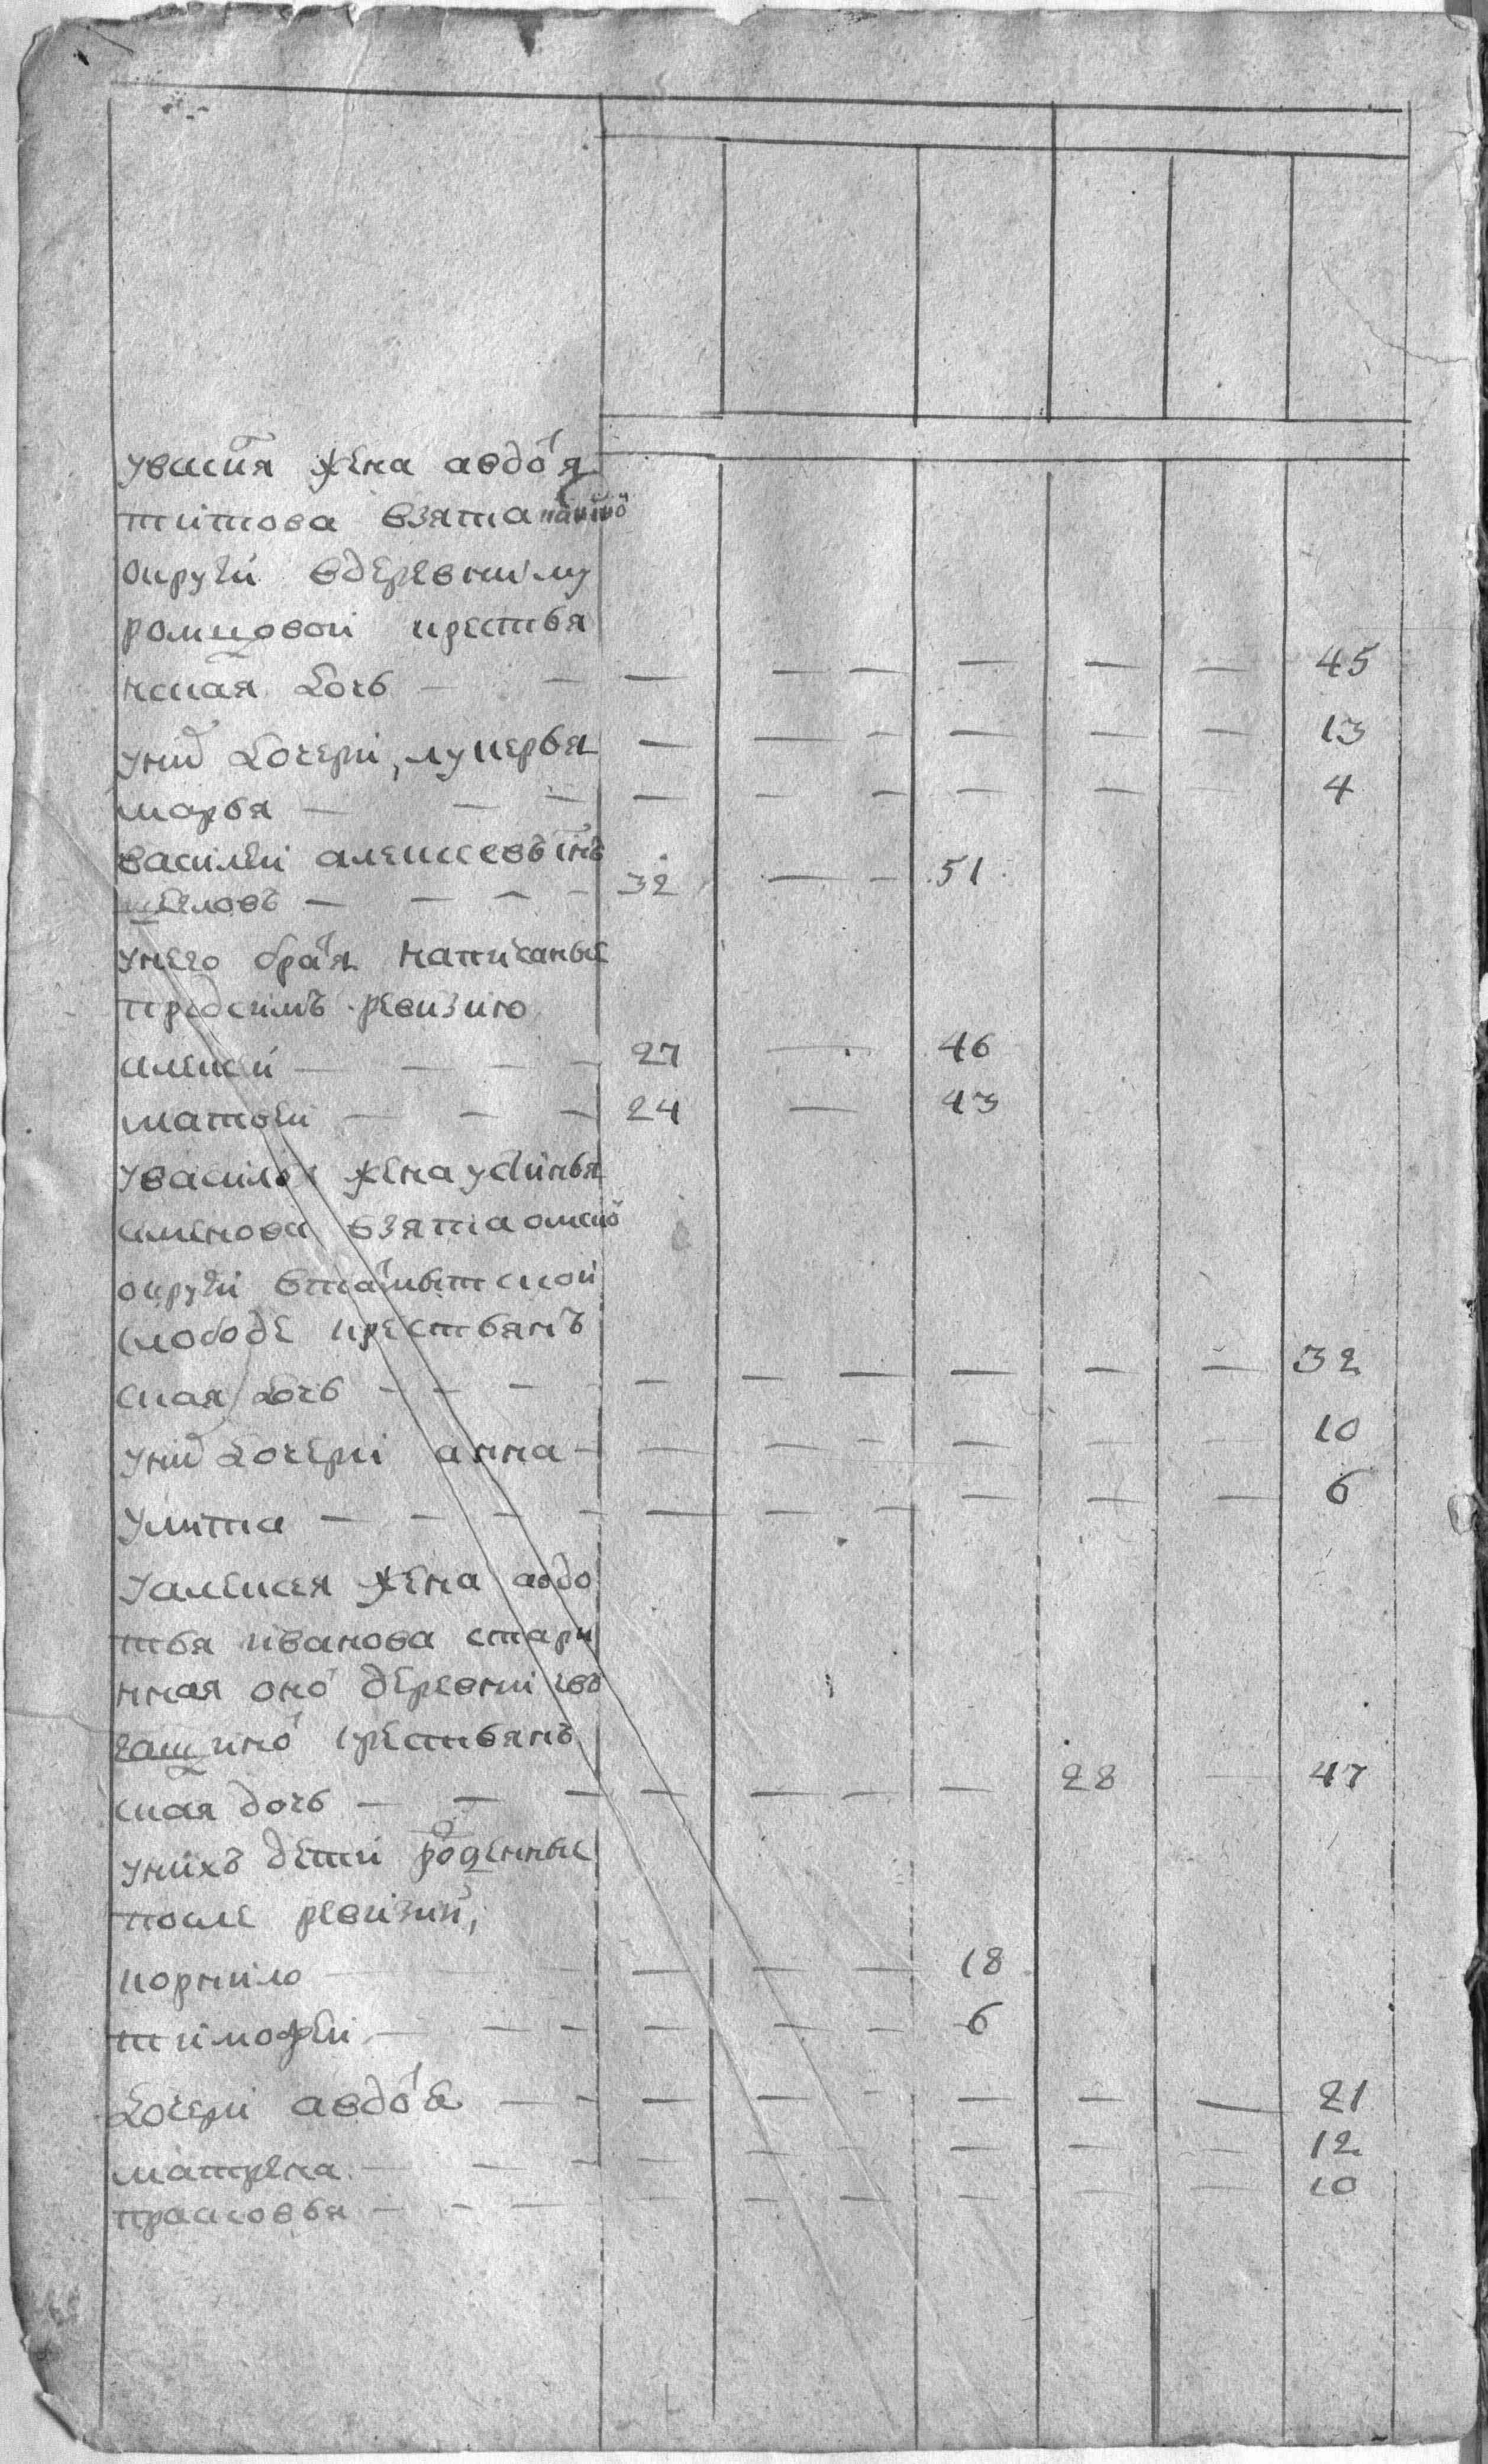 увасиⷧя жена авдоⷮя
титова взята
округи вдеревни му
ромцовой крестья
нская дочь — — — — — — — — 45
уних дочери, лукерья — — — — — — 13
марья — — — — — — — — — 4
василей алексеевъ снъ
шеловъ — — — — 32 — — 51
унего братя написаные
предсимъ ревизию
алексей — — — — 27 — 46
матвей — — — 24 — 43
увасилья жена устинья
семенова взята омской
округи
слободе крестьянъ
ская дочь — — — — — — — — — 32
уних дочери анна — — — — — — — 10
улита — — — — — — — — — — 6
уалексея жена авдо
тья иванова стари
нная оной деревни
крестьянъ
ская дочь — — — — — — — 28 — 47
унихъ дети роженные
после ревизии,
корнило — — — — — 18
тимофей — — — — — — 6
дочери авдоⷮя — — — — — — — — 21
матрена — — — — — — — — — 12
прасковья — — — — — — — — — — 10